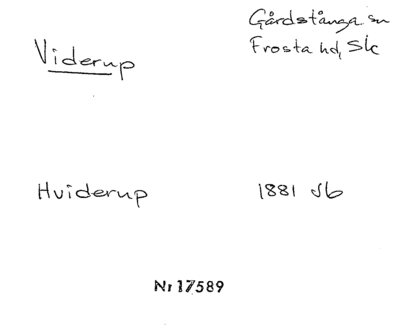 Viderup
Gårdstånga sn
Frosta hd, Sk
Hviderup
1881 Jb
Nr 17589